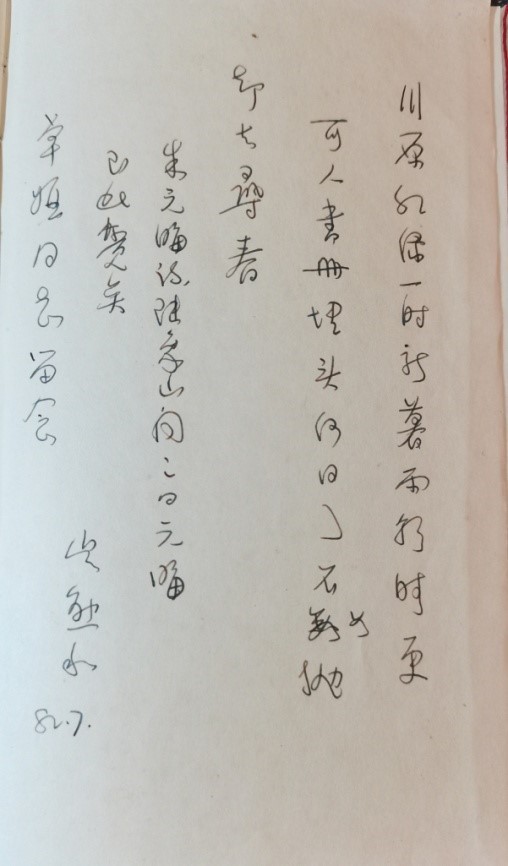 川原红绿一时新暮雨朝时更
可人书册埋头何日了不如抛
却去寻春
朱元晦诗陆象山闻之曰元晦
至此觉矣
同志留念
吴熊和
82.7.